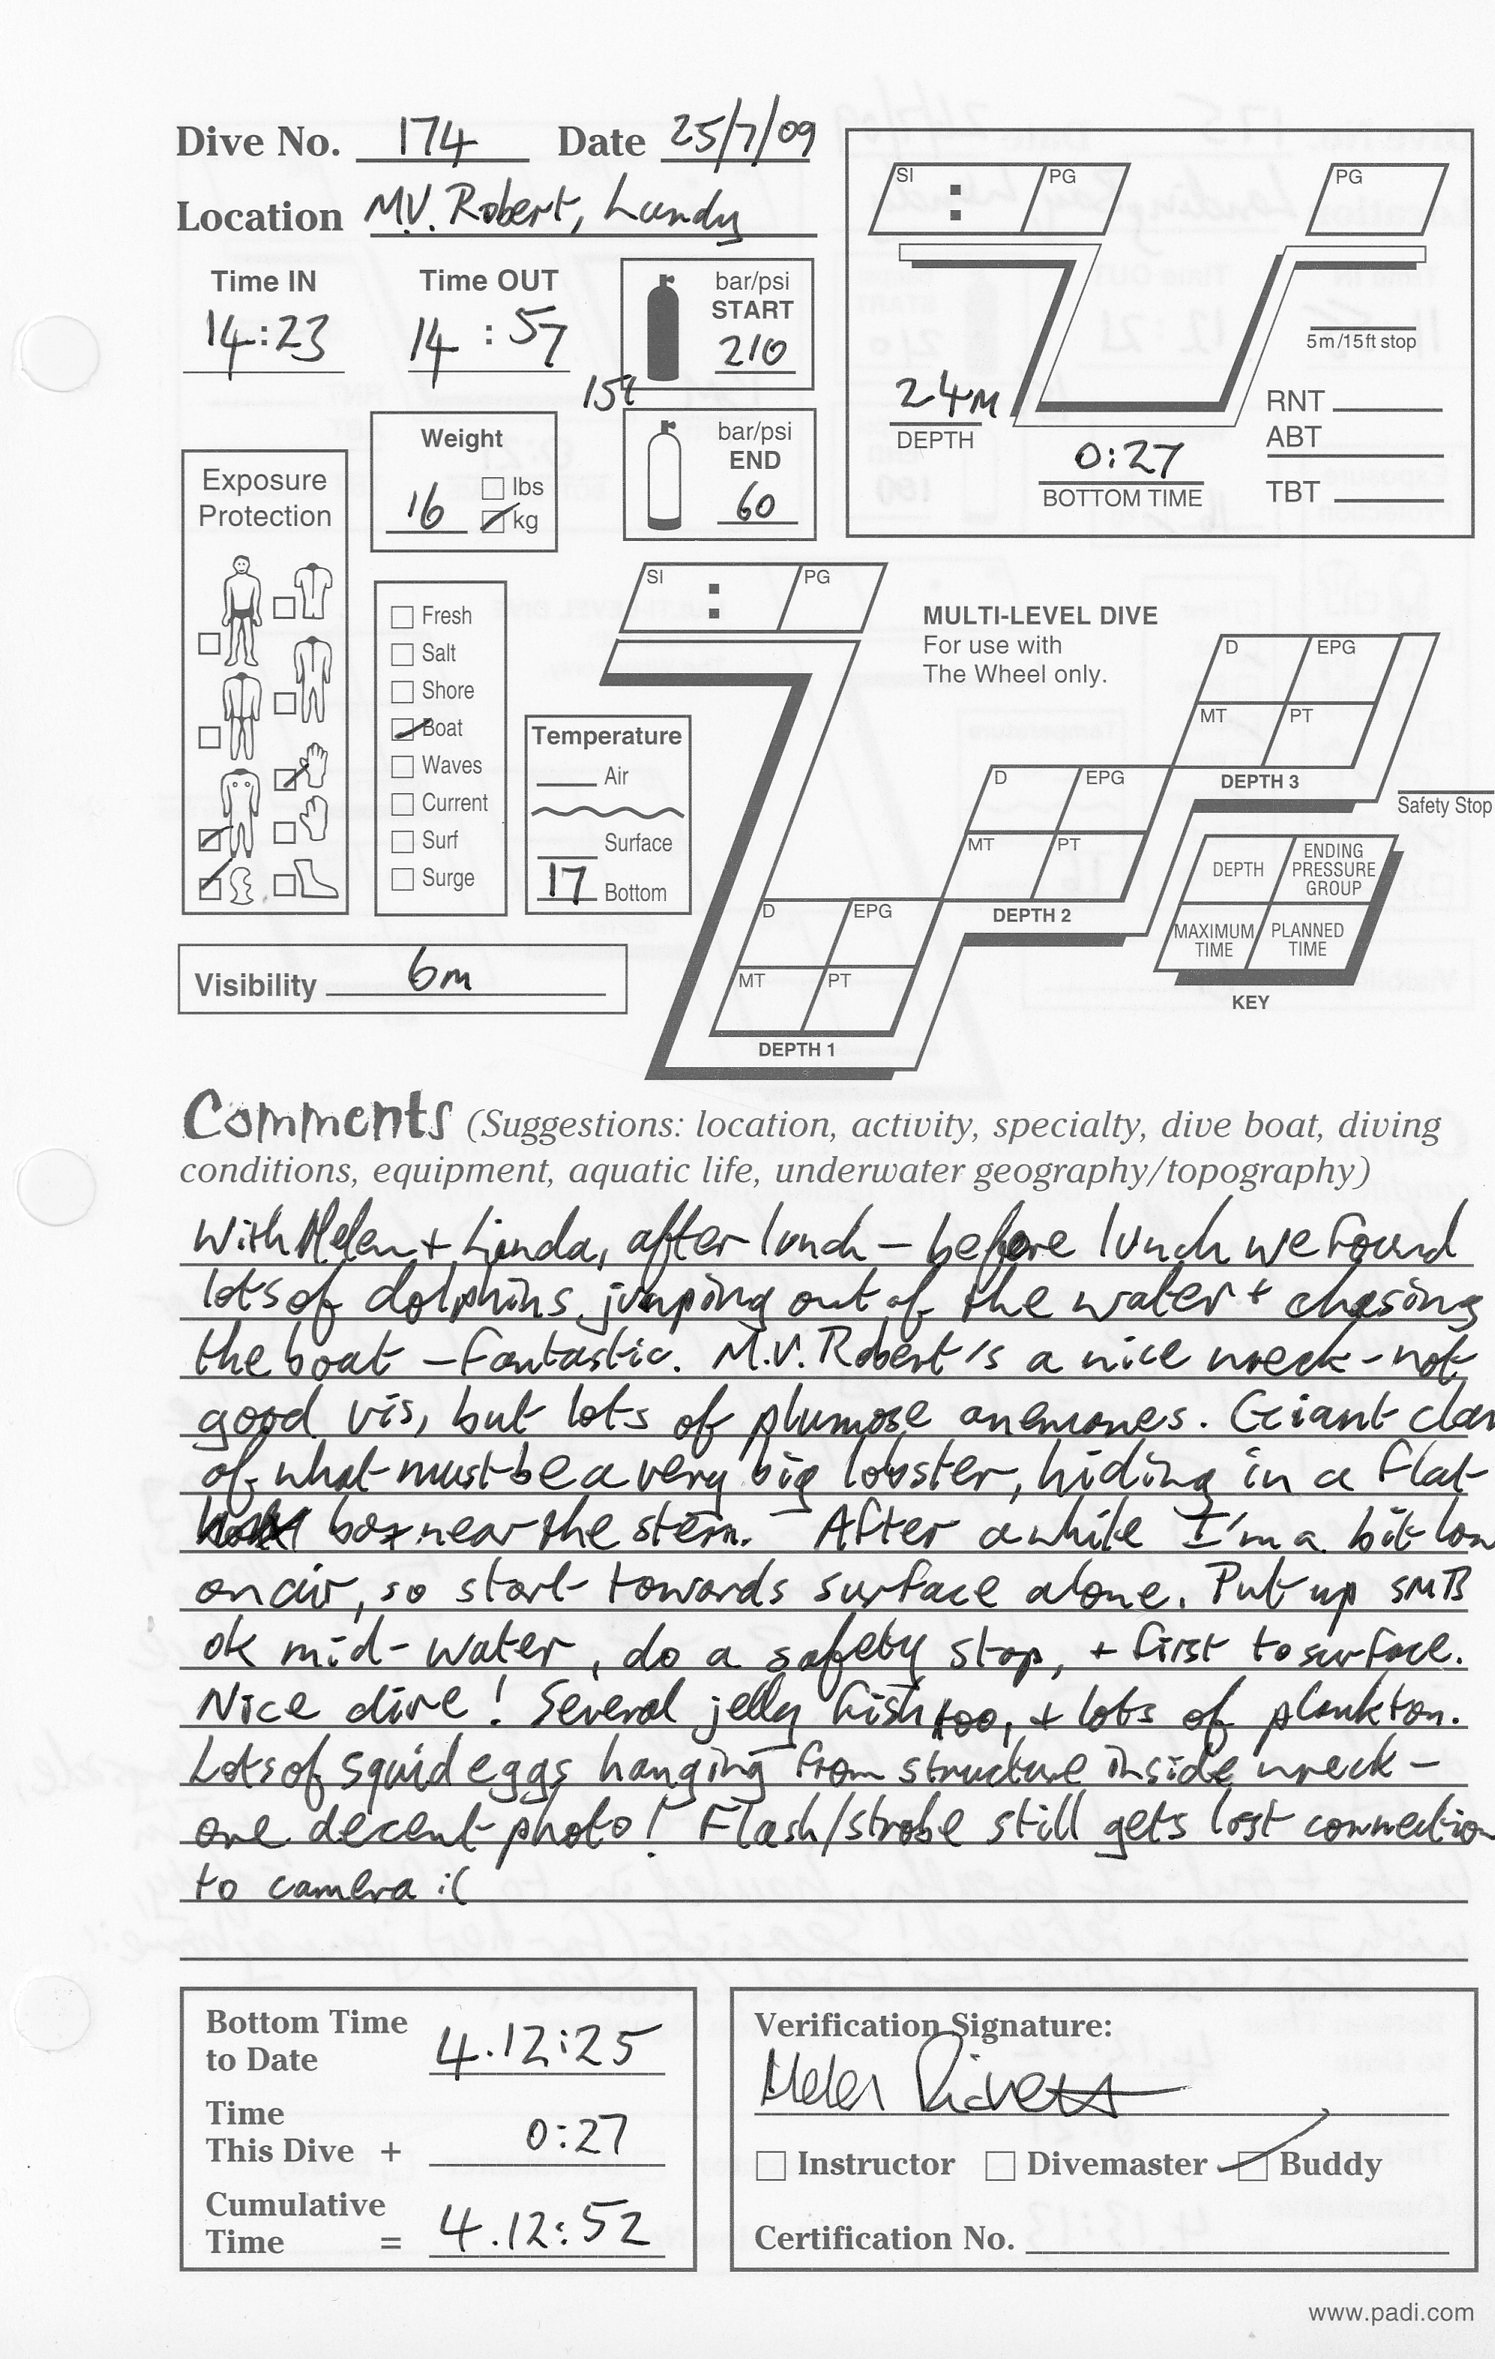 Dive No. 174 Date 25/7/09
Location M.V. Robert, Lundy
SI : PG
PG
Time IN Time OUT
14:23 14:57
bar/psi
START
210
5m/15ft stop
24m
DEPTH
0:27
BOTTOM TIME
RNT
ABT
TBT
Exposure
Protection
Weight
16 lbs
kg
bar/psi
END
60
Fresh
Salt
Shore
Boat
Waves
Current
Surf
Surge
SI : PG
MULTI-LEVEL DIVE
For use with
The Wheel only.
Temperature
Air
Surface
17 Bottom
D EPG
MT PT
DEPTH 1
D EPG
MT PT
DEPTH 2
D EPG
MT PT
DEPTH 3
Safety Stop
DEPTH ENDING PRESSURE GROUP
MAXIMUM TIME PLANNED TIME
KEY
Visibility 6m
Comments (Suggestions: location, activity, specialty, dive boat, diving
conditions, equipment, aquatic life, underwater geography/topography)
With Helen + Linda, after lunch – before lunch we found
lots of dolphins jumping out of the water + chasing
the boat – fantastic. M.V. Robert's a nice wreck – not
good vis, but lots of plumose anemones. Giant
of what must be a very big lobster, hiding in a flat
box near the stern. – After awhile I'm a bit low
on air, so start towards surface alone. Put up SMB
ok mid-water, do a safety stop, + first to surface.
Nice dive! Several jelly fish too, + lots of plankton.
Lots of squid eggs hanging from structure inside wreck –
one decent photo! Flash/strobe still gets lost connection
to camera :(
Bottom Time
to Date 4.12:25
Time
This Dive + 0:27
Cumulative
Time = 4.12:52
Verification Signature:
Helen
Instructor Divemaster Buddy
Certification No.
www.padi.com